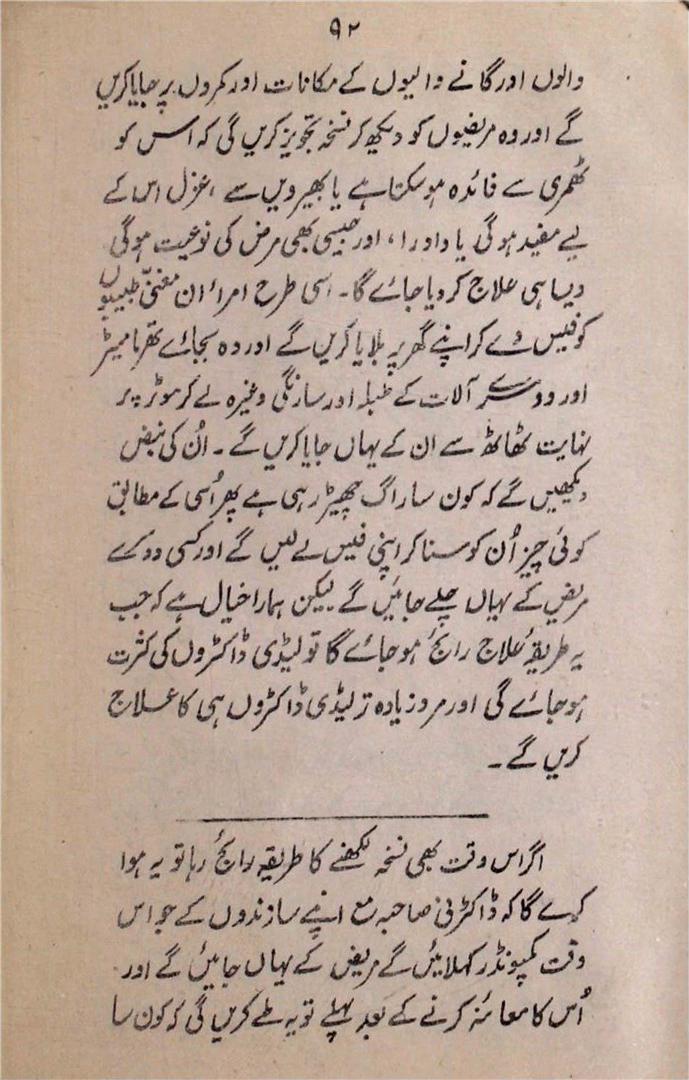 ۹۲
والوں اور گانے والیوں کے مکانات اور کمروں پر جایا کریں
گے اور وہ مریضوں کو دیکھ کر نسخہ تجویز کریں گی کہ اس کو
ٹھمری سے فائدہ ہوسکتا ہے یا بھیرویں سے، غزل اس کے
لیے مفید ہوگی یا دادرا، اور جیسی بھی مرض کی نوعیت ہوگی
ویسا ہی علاج کردیا جائے گا۔ اسی طرح امراء ان مغنّی طبیبوں
کو فیس دے کر اپنے گھر پر بلایا کریں گے اور وہ بجائے تھرمامیٹر
اور دوسرے آلات کے طبلہ اور سارنگی وغیرہ لے کر موٹر پر
نہایت ٹھاٹھ سے ان کے یہاں جایا کریں گے۔ اُن کی نبض
دیکھیں گے کہ کون سا راگ چھیڑ رہی ہے پھر اُسی کے مطابق
کوئی چیز اُن کو سنا کر اپنی فیس لے لیں گے اور کسی دوسرے
مریض کے یہاں چلے جائیں گے لیکن ہمارا خیال ہے کہ جب
یہ طریقۂ علاج رائج ہوجائے گا تو لیڈی ڈاکٹروں کی کثرت
ہوجائے گی اور مرد زیادہ تر لیڈی ڈاکٹروں ہی کا علاج
کریں گے۔
اگر اس وقت بھی نسخہ لکھنے کا طریقہ رائج رہا تو یہ ہوا
کرے گا کہ ڈاکٹرنی صاحبہ مع اپنے سازندوں کے جو اس
وقت کمپونڈر کہلائیں گے مریض کے یہاں جائیں گے اور
اُس کا معائنہ کرنے کے بعد پہلے تو یہ طے کریں گی کہ کون سا